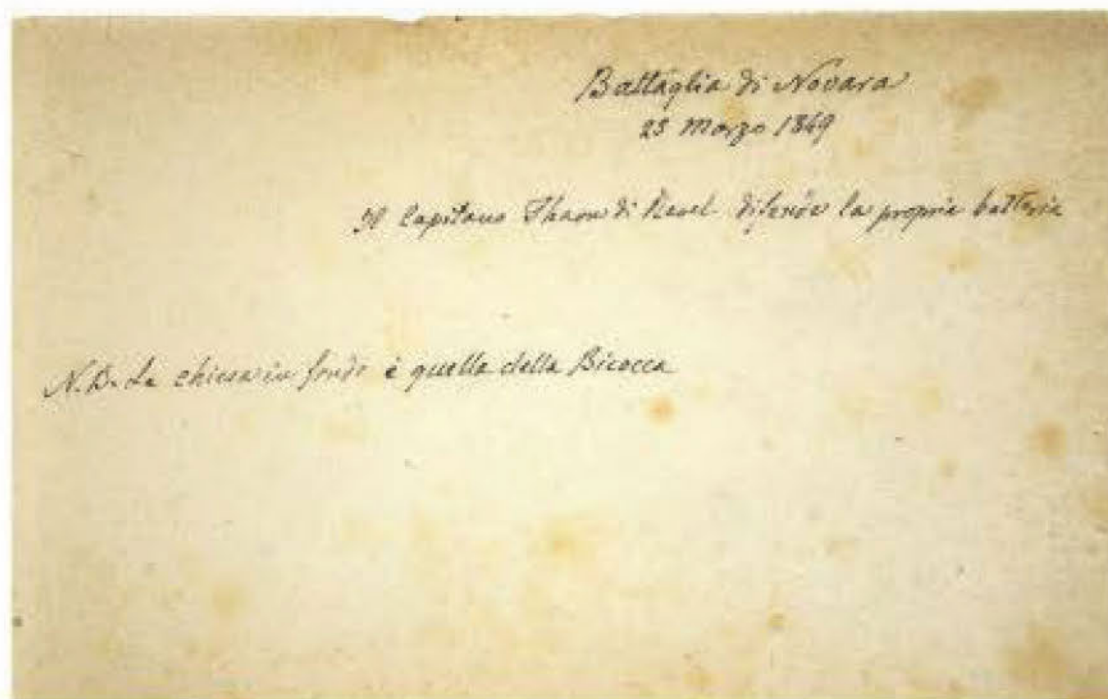 Battaglia di Novara
23 Marzo 1849
Il Capitano Thaon di Revel difende la propria batteria
N.B. La chiesa in fondo è quella della Bicocca